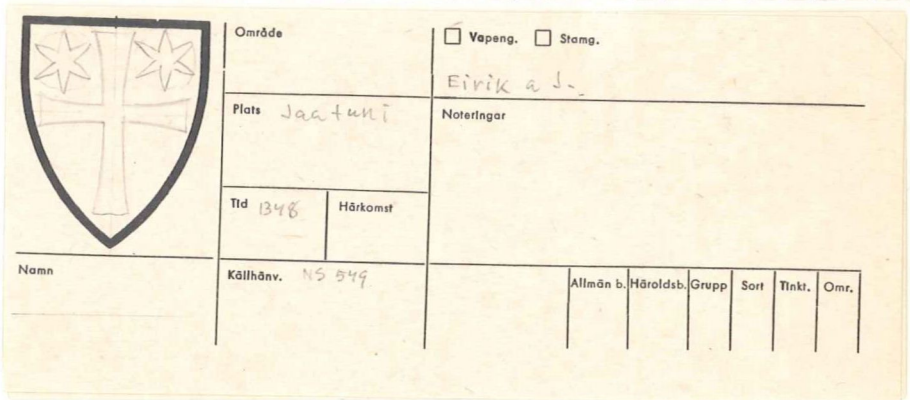 Område
Vapeng. Stamg.
Eirik a J..
Plats Jaatuni
Noteringar
Tid 1348
Härkomst
Namn
Källhänv. NS 549
Allmän b. Häroldsb. Grupp Sort Tinkt. Omr.